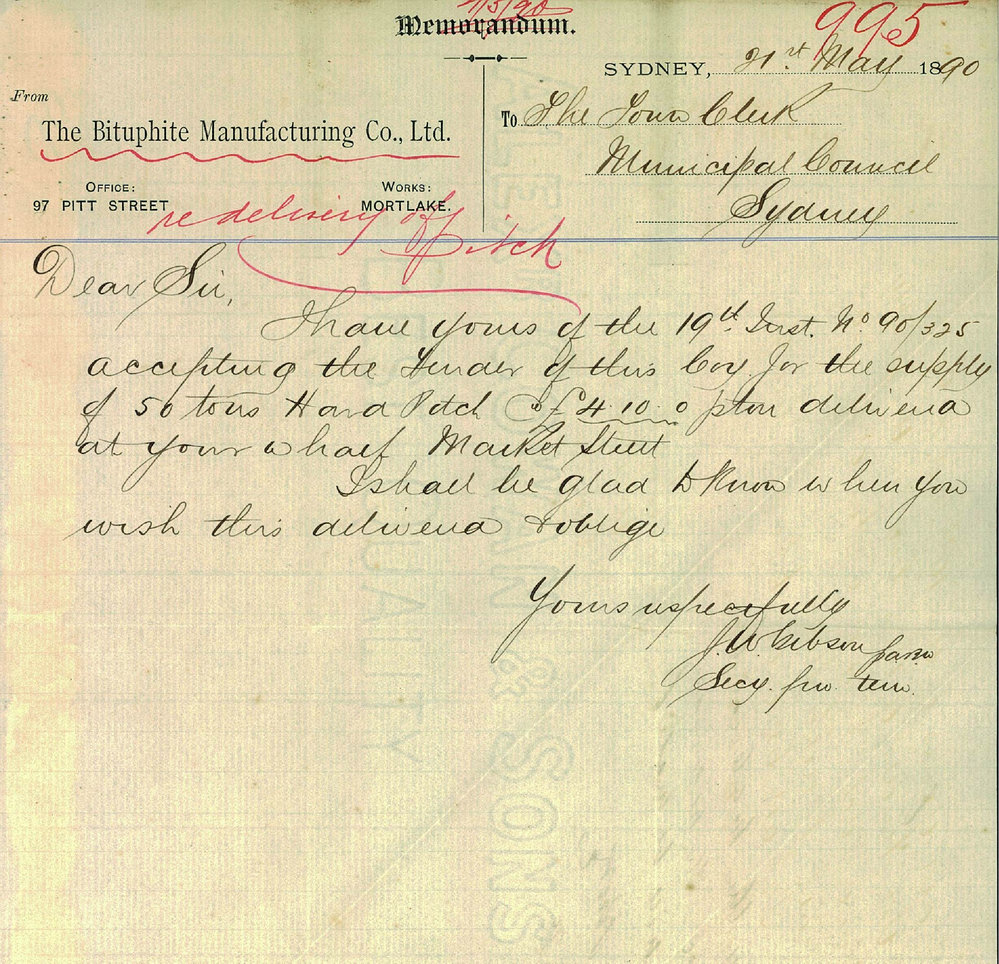 Memorandum.
995
SYDNEY, 21st May 1890
From
The Bituphite Manufacturing Co., Ltd.
To The Town Clerk
Municipal Council
Sydney
OFFICE:
97 PITT STREET
WORKS:
MORTLAKE.
re delivery of Pitch
Dear Sir,
I have yours of the 19th Inst. No 90/325
accepting the Tender of this Coy for the supply
of 50 tons Hard Pitch @ £4.10.0 p ton delivered
at your wharf Market Street
I shall be glad to know when you
wish this delivered & oblige
Yours respectfully
J. W. Gibson
Secy. pro tem.
& SONS
QUALITY